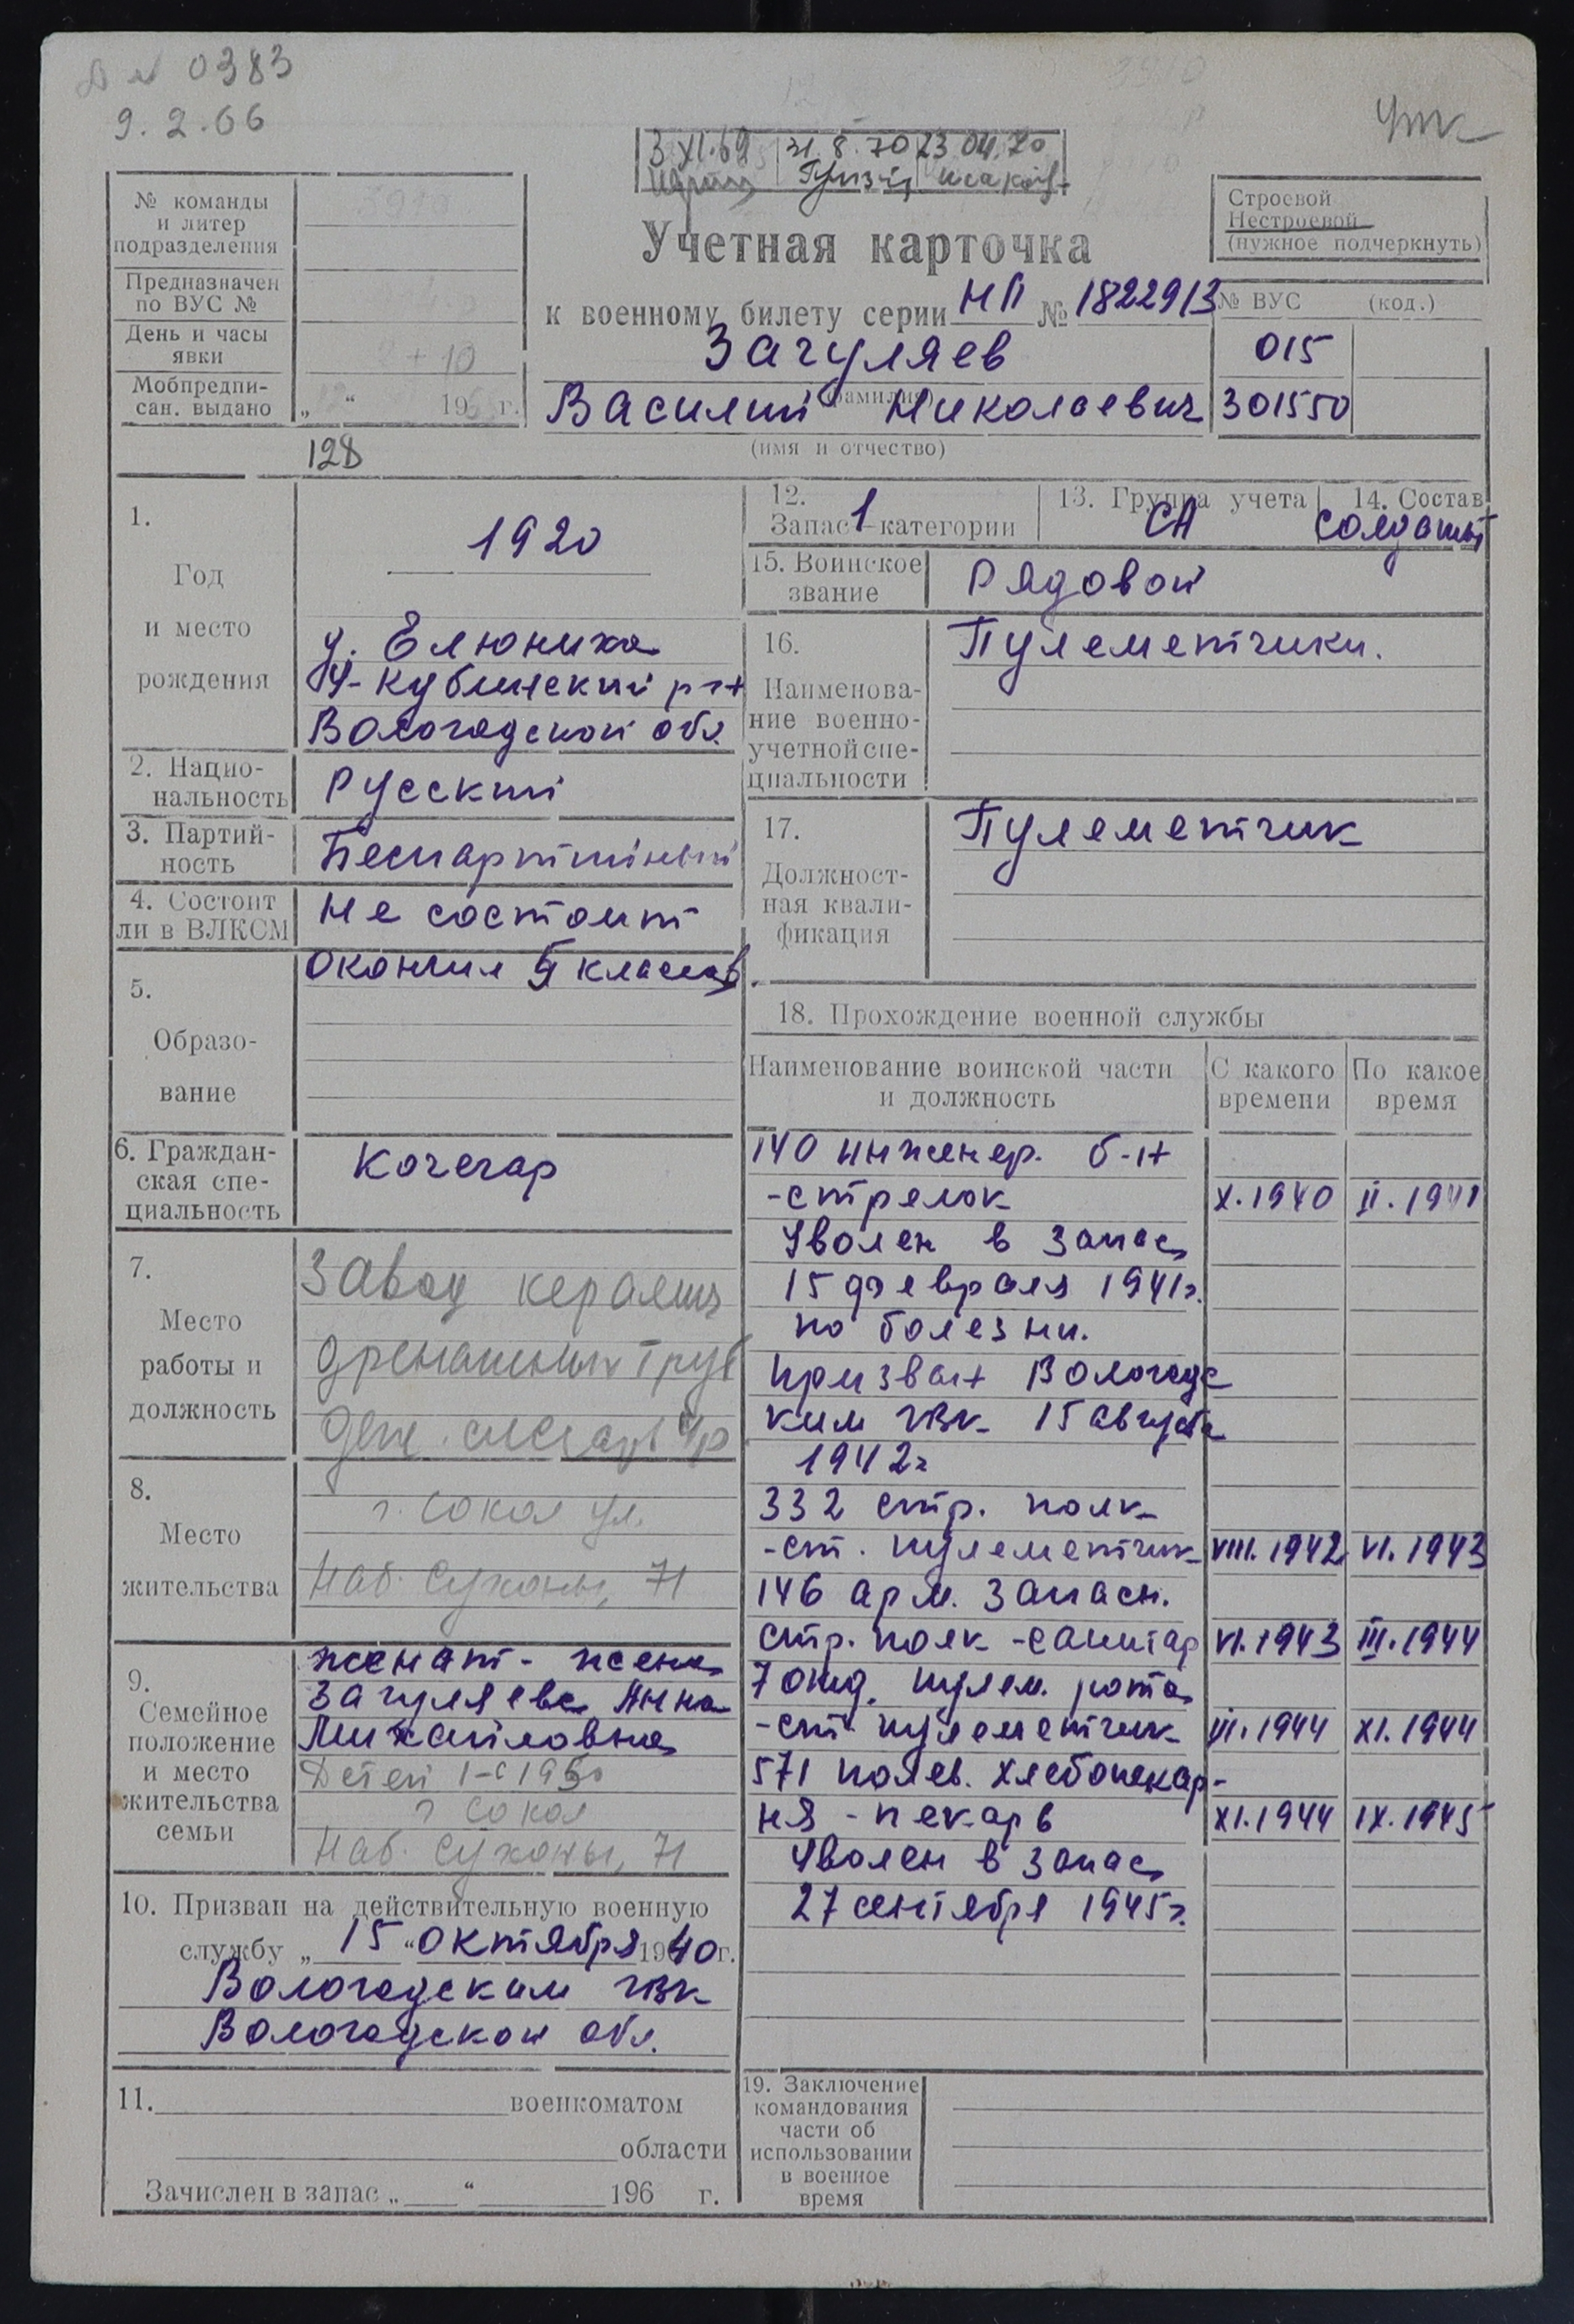 0383
9.2.66
3 XI.69 31.8.70 23 04.70
№ команды
и литер
подразделения
Предназначен
по ВУС №
День и часы
явки
+ 10
Мобпредпи-
сан. выдано
„ “ 19 г.
128
Учетная карточка
к военному билету серии НП № 1822913
Загуляев
(фамилия)
Василий Николаевич
(имя и отчество)
Строевой
Нестроевой
(нужное подчеркнуть)
№ ВУС (код.)
015
301550
1.
Год
и место
рождения
1920
д. Елюниха
У-Кубинский р-н
Вологодской обл.
2. Нацио-
нальность
Русский
3. Партий-
ность
Беспартийный
4. Состоит
ли в ВЛКСМ
Не состоит
5.
Образо-
вание
окончил классов
6. Граждан-
ская спе-
циальность
Кочегар
7.
Место
работы и
должность
Завод керамич
дренажных труб
слесарь
8.
Место
жительства
г. Сокол ул.
Наб. Сухоны, 71
9.
Семейное
положение
и место
жительства
семьи
женат - жена
Загуляева Анна
Михайловна
Детей 1-с 1950
г Сокол
Наб. Сухоны, 71
10. Призван на действительную военную
службу „ 15 “ октября 1940 г.
Вологодским ГВК
Вологодской обл.
11. военкоматом
области
Зачислен в запас „ “ 196 г.
12.
Запас 1 категории
13. Группа учета
СА
14. Состав
солдаты
15. Воинское
звание
Рядовой
16.
Наименова-
ние военно-
учетной спе-
циальности
Пулеметчики.
17.
Должност-
ная квали-
фикация
Пулеметчик
18. Прохождение военной службы
Наименование воинской части
и должность
С какого
времени
По какое
время
140 инженер. б-н
-стрелок X.1940 II.1941
Уволен в запас
15 февраля 1941г.
по болезни.
Призван Вологодс
ким ГВК 15 августа
1942г
332 стр. полк
-ст. пулеметчик VIII.1942 VI.1943
146 арм. запасн.
стр. полк -санитар VI.1943 III.1944
7 отд. пулем. рота
-ст. пулеметчик III.1944 XI.1944
571 полев. хлебопекар-
ня -пекарь XI.1944 IX.1945
Уволен в запас
27 сентября 1945г.
19. Заключение
командования
части об
использовании
в военное
время